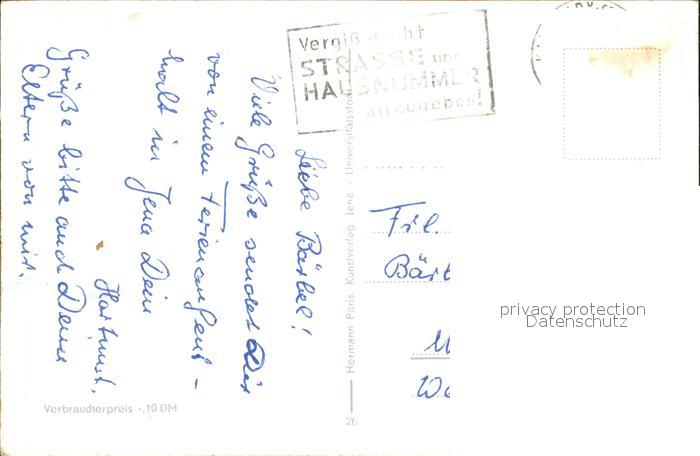 Vergiß nicht
STRASSE und
HAUSNUMMER
anzugeben!
Liebe Bärbel!
Viele Grüße sendet Dir
von einem Ferienaufent-
halt in Jena Dein
Hartmut.
Grüße bitte auch Deine
Eltern von mir.
Hermann Paris, Kunstverlag, Jena - Universitätsstr.
26
Verbraucherpreis -.10 DM
Frl.
Bärb
W
We
privacy protection
Datenschutz